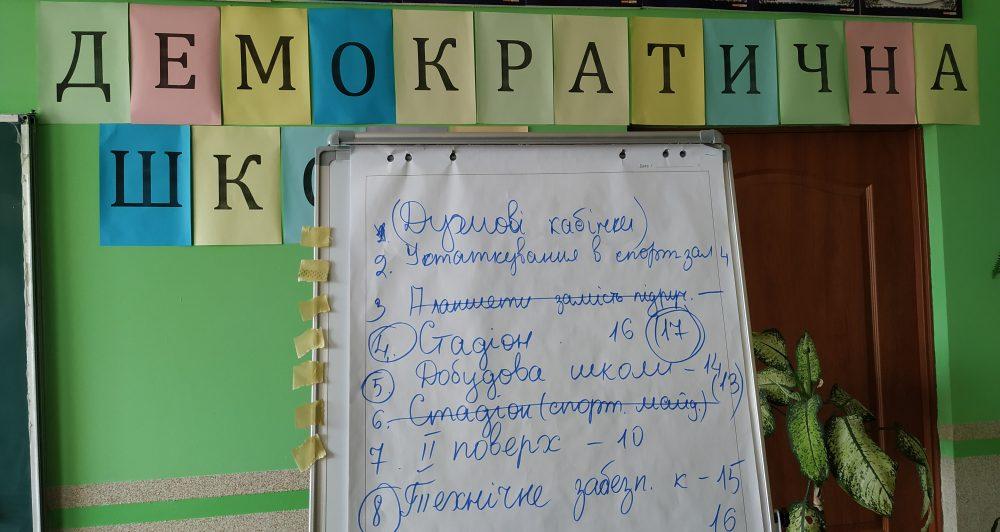 ДЕМОКРАТИЧНА
ШК
1. (Душові кабінки)
2. Устаткування в спортзал 4
3 Планшети замість підруч. —
4. Стадіон 16 17
5 Добудова школи - 14 (13)
6. Стадіон (спорт. майд)
7 II поверх - 10
8 Технічне забезп. к - 15
16